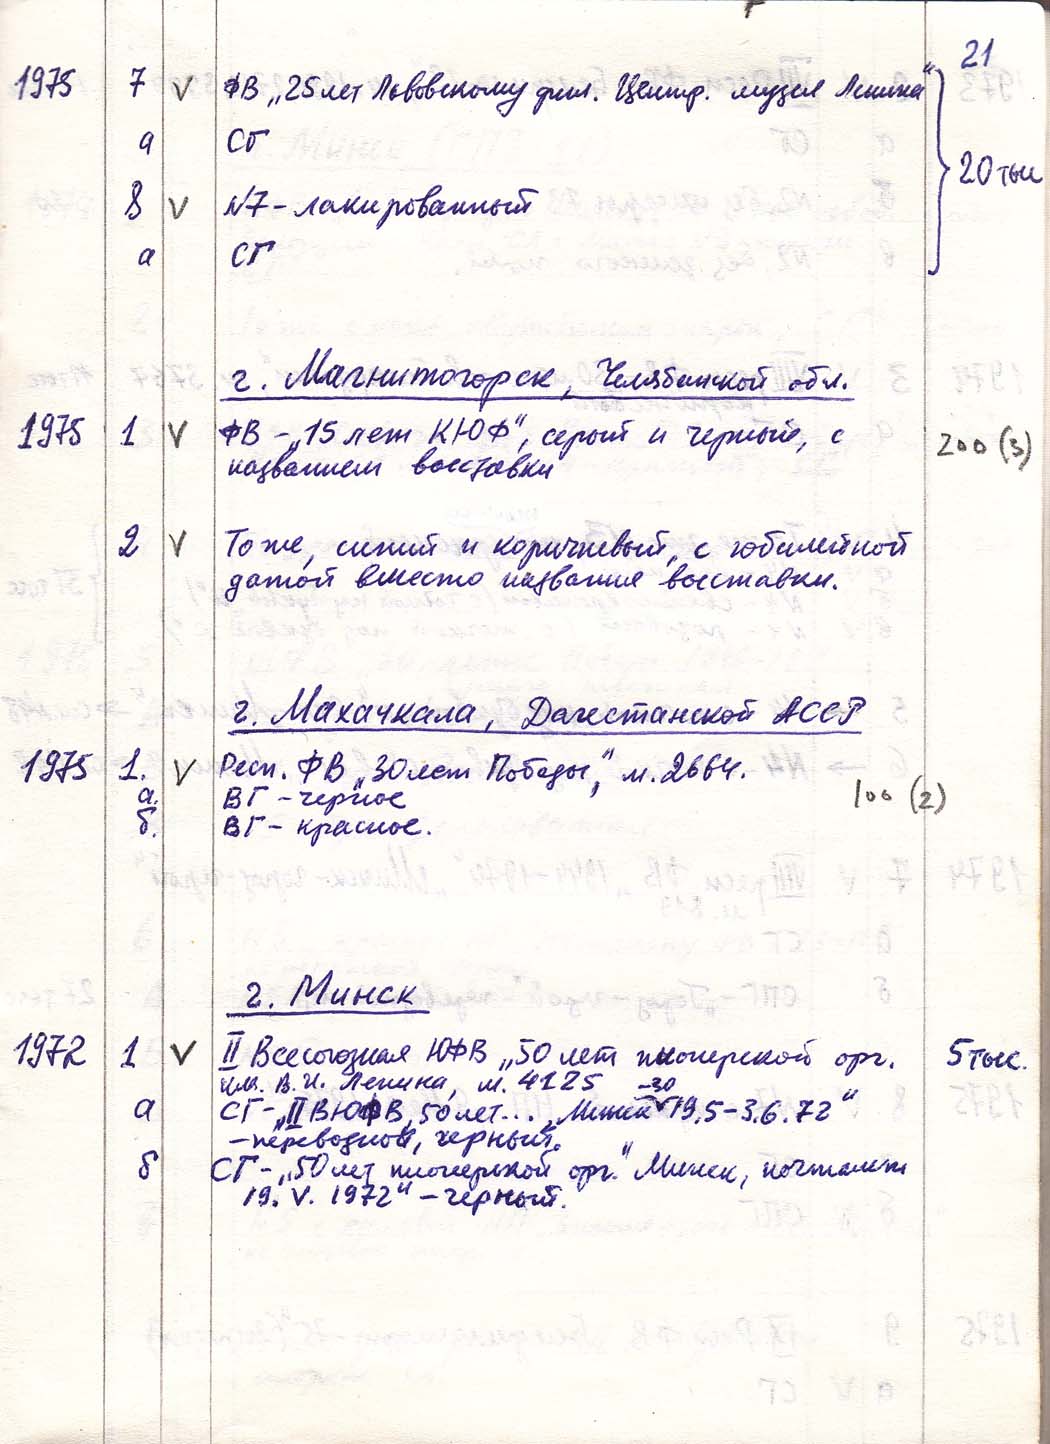 21
1975 7 V ФВ „25 лет Львовскому фил. Центр. музея Ленина"
а СГ
20 тыс
8 V N7 - лакированный
а СГ
г. Магнитогорск, Челябинской обл.
1975 1 V ФВ - „15 лет КЮФ", серый и черный, с
названием выставки
200 (3)
2 V То же, синий и коричневый, с юбилейной
датой вместо названия выставки.
г. Махачкала, Дагестанской АССР
1975 1. V Респ. ФВ „30 лет Победы", м. 2664.
а. ВГ - черное
100 (2)
б. ВГ - красное.
г. Минск
1972 1 V II Всесоюзная ЮФВ „50 лет пионерской орг. 5 тыс.
им. В. И. Ленина, м. 4125
-30
а СГ - „II ВЮФВ, 50 лет... Минск 19.5-3.6.72"
- переводной, черный.
б СГ - „50 лет пионерской орг." Минск, почтамт
19. V. 1972" - черный.